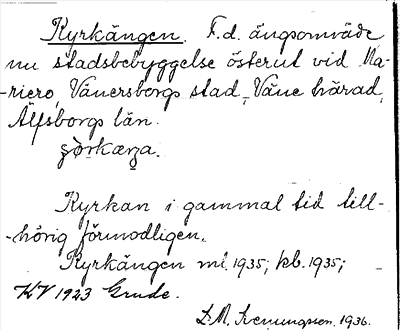 Kyrkängen. F.d. ängsområde,
nu stadsbebyggelse österut vid Ma-
-riero, Vänersborgs stad, Väne härad,
Älfsborgs län.
Kyrkan i gammal tid till-
-hörig förmodligen.
Kyrkängen ml. 1935; kb. 1935;
KV 1923 Grude.
1936.